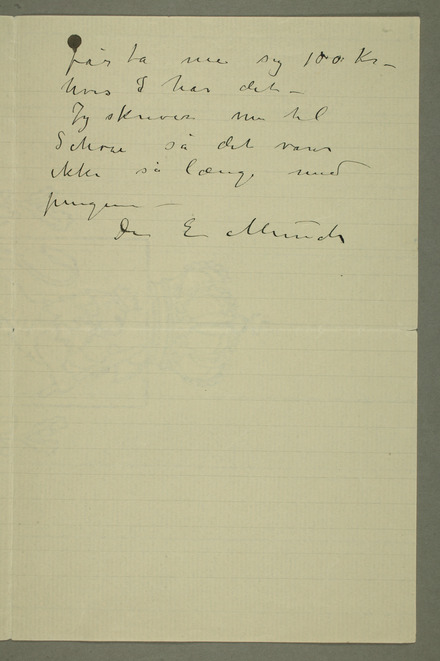 får ta me sy 100 Kr –
hvis I har det –
Jeg skriver nu til
Schou så det varer
ikke så længe med
pengene –
Din E Munch